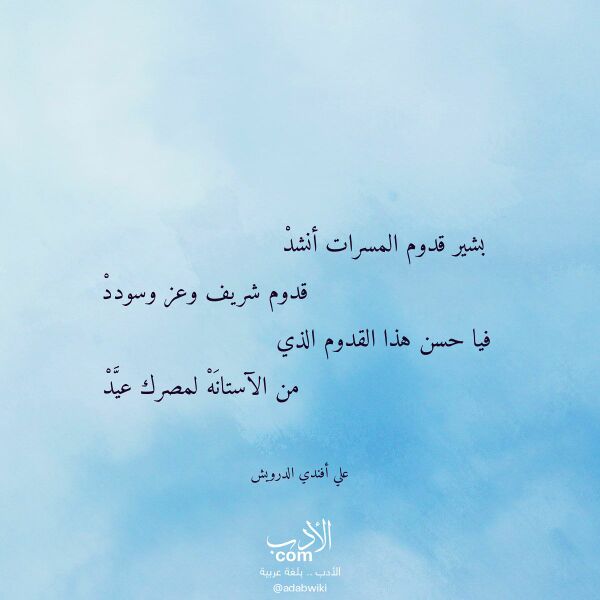 بشير قدوم المسرات أنشدْ
قدوم شريف وعز وسوددْ
فيا حسن هذا القدوم الذي
من الآستانَهْ لمصرك عيَّدْ
علي أفندي الدرويش
الأدب
com
الأدب .. بلغة عربية
@adabwiki